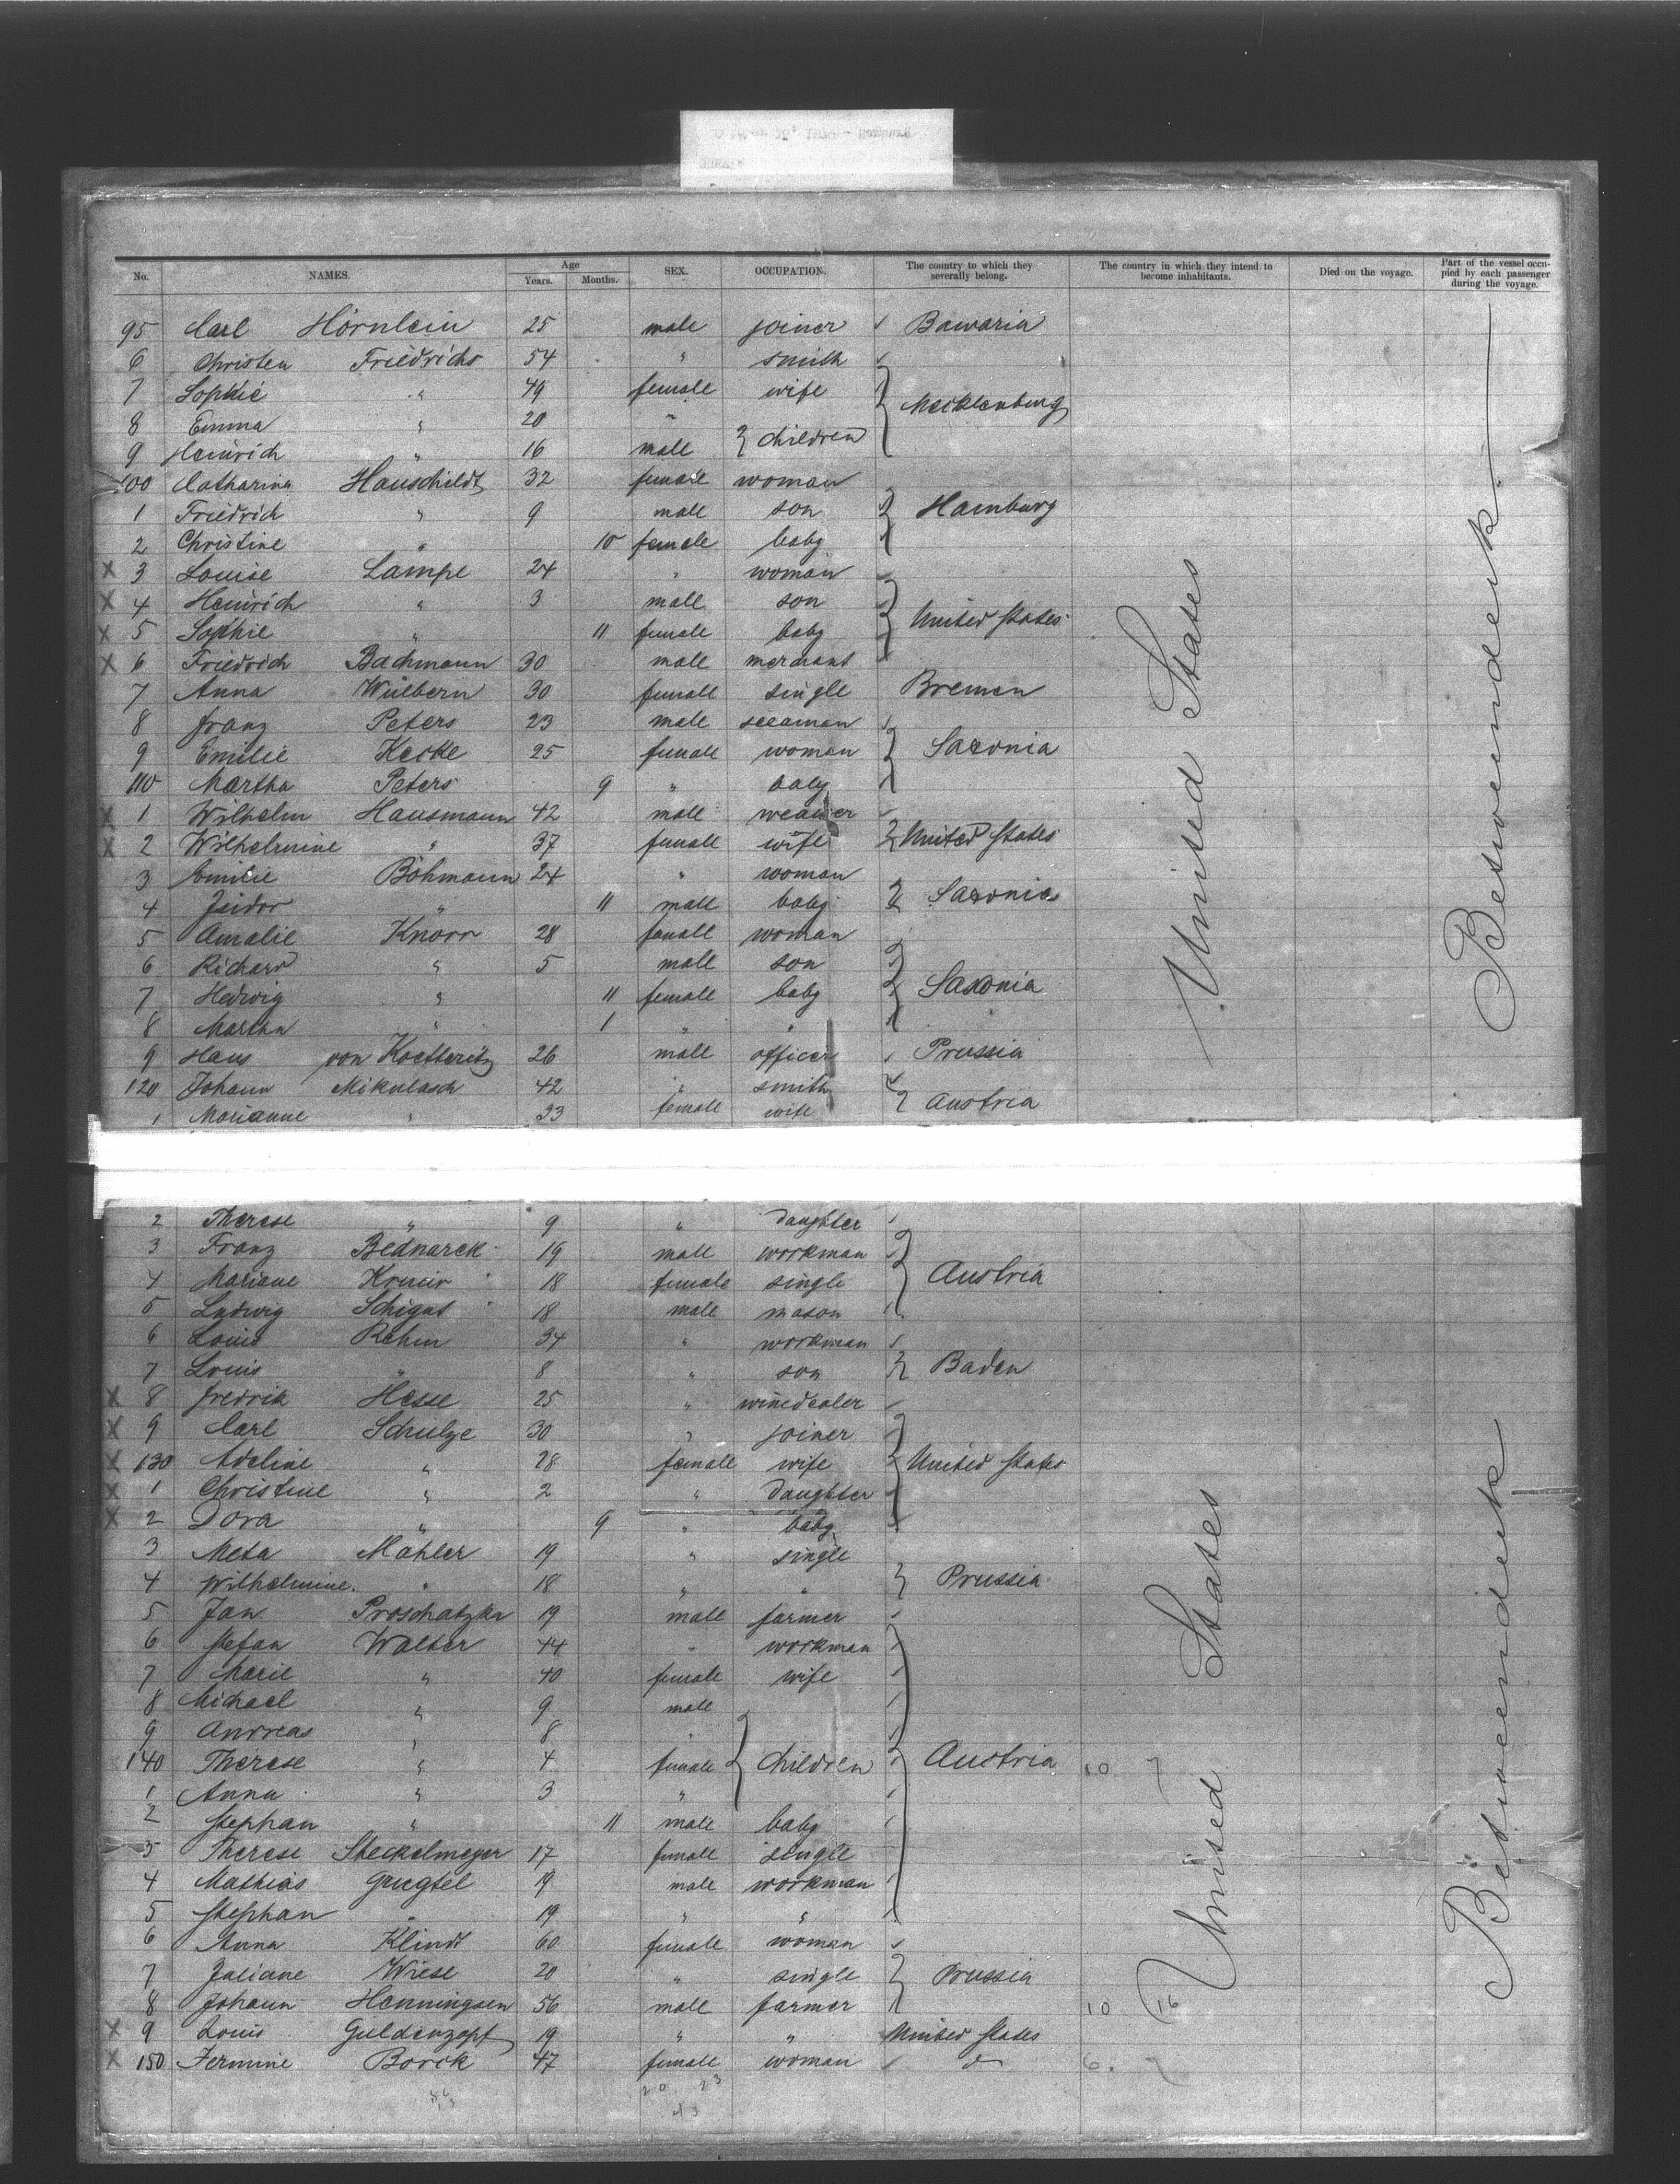 No. NAMES. Age Years. Months. SEX. OCCUPATION. The country to which they severally belong. The country in which they intend to become inhabitants. Died on the voyage. Part of the vessel occupied by each passenger during the voyage.
95 Carl Hörnlein 25 male joiner Bawaria
6 Christen Friedrichs 54 " smith
7 Sophie " 49 female wife Mecklenburg
8 Emma " 20 " children
9 Heinrich " 16 male
100 Catharina Hauschildt 32 female woman
1 Friedrich " 9 male son Hamburg
2 Christine " 10 female baby
X 3 Louise Lampe 24 " woman
X 4 Heinrich " 3 male son
X 5 Sophie " 11 female baby United States
X 6 Friedrich Bachmann 30 male merchant
7 Anna Wülbern 30 female single Bremen
8 Franz Peters 23 male seeaman
9 Emilie Kecke 25 female woman Saxonia
110 Martha Peters 9 " baby
X 1 Wilhelm Hausmann 42 male weawer
X 2 Wilhelmine " 37 female wife United States
3 Emilie Böhmann 24 " woman
4 Isidor " 11 male baby Saxonia
5 Amalie Knorr 28 female woman
6 Richard " 5 male son
7 Hedwig " 11 female baby Saxonia
8 Martha " 1 " "
9 Hans von Koetteritz 26 male officer Prussia
120 Johann Mikulasch 42 " smith
1 Marianne " 33 female wife Austria
United States
Betweendeck
2 Therese " 9 " daughter
3 Franz Bednarek 19 male workman
4 Mariane 18 female single Austria
5 Ludwig Schigut 18 male mason
6 Louis Rehm 34 " workman
7 Louis " 8 " son Baden
X 8 Fredrik Hesse 25 " winedealer
X 9 Carl Schulze 30 " joiner
X 130 Adeline " 28 female wife United States
X 1 Christine " 2 " daughter
X 2 Dora " 9 " baby
3 Meta Mahler 19 " single
4 Wilhelmine " 18 " " Prussia
5 Jan Proschatzka 19 male farmer
6 Stefan Walter 44 " workman
7 Marie " 40 female wife
8 Michael " 9 male
9 Andreas " 8 "
140 Therese " 4 female children Austria 10
1 Anna " 3 "
2 Stephan " 11 male baby
3 Therese Steckelmeyer 17 female single
4 Mathias 19 male workman
5 Stephan " 19 " "
6 Anna Klindt 60 female woman
7 Juliane Wiese 20 " single Prussia
8 Johann Henningsen 56 male farmer 10 16
X 9 Louis Guldenzopf 19 " " United States
X 150 Fermine Borck 47 female woman do 6
United States
Betweendeck
20 23
43